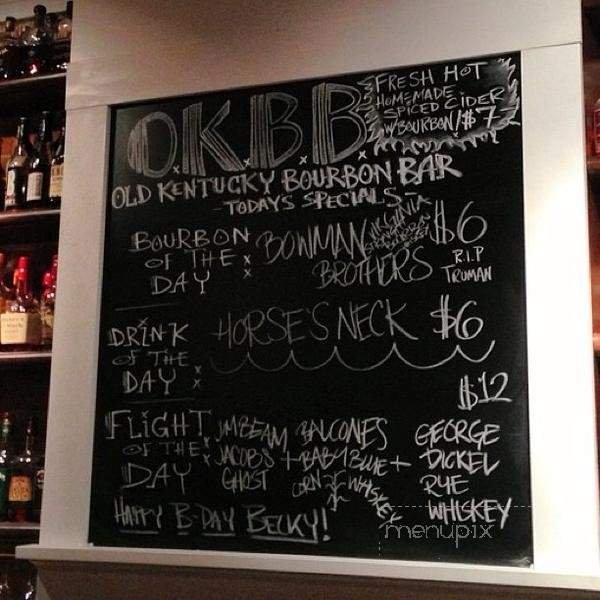 O.K.B.B.
FRESH HOT
HOMEMADE
SPICED CIDER
W/BOURBON/$7
OLD KENTUCKY BOURBON BAR
-TODAYS SPECIALS-
BOURBON
OF THE
DAY
BOWMAN
BROTHERS
VIRGINIA
STRAIGHT
BOURBON
$6
R.I.P
TRUMAN
DRINK
OF THE
DAY
HORSE'S NECK $6
$12
FLIGHT
OF THE
DAY
JIM BEAM
JACOB'S
GHOST
+
BALCONES
BABY BLUE
CORN WHISKEY
+
GEORGE
DICKEL
RYE
WHISKEY
HAPPY B-DAY BECKY!
menupix